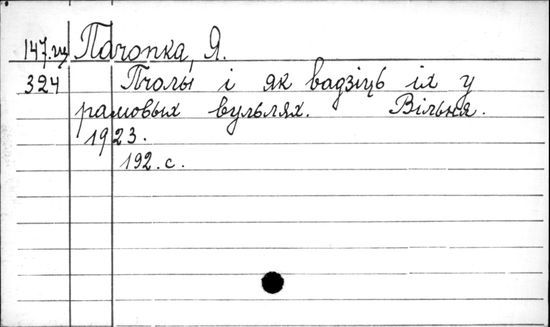 147.
Пачопка, Я.
324 Пчолы і як вадзіць іх у
рамовых вульлях. Вільня.
1923.
192.с.